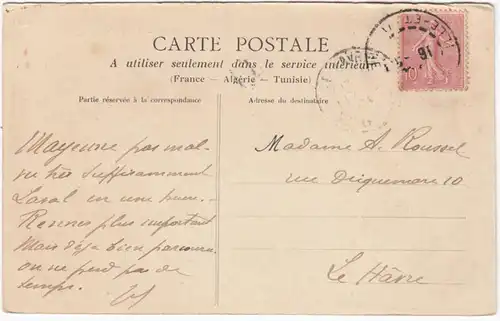 CARTE POSTALE
A utiliser seulement dans le service intérieur
(France - Algérie - Tunisie)
Partie réservée à la correspondance
Adresse du destinataire
Mayenne pas mal
vu très suffisamment
Laval en une heure.
Rennes plus important
Mais déjà bien parcouru
on ne perd pas de
temps.
Madame A. Roussel
rue Dicquemare 10
Le Hâvre
ILLE-ET-V
10